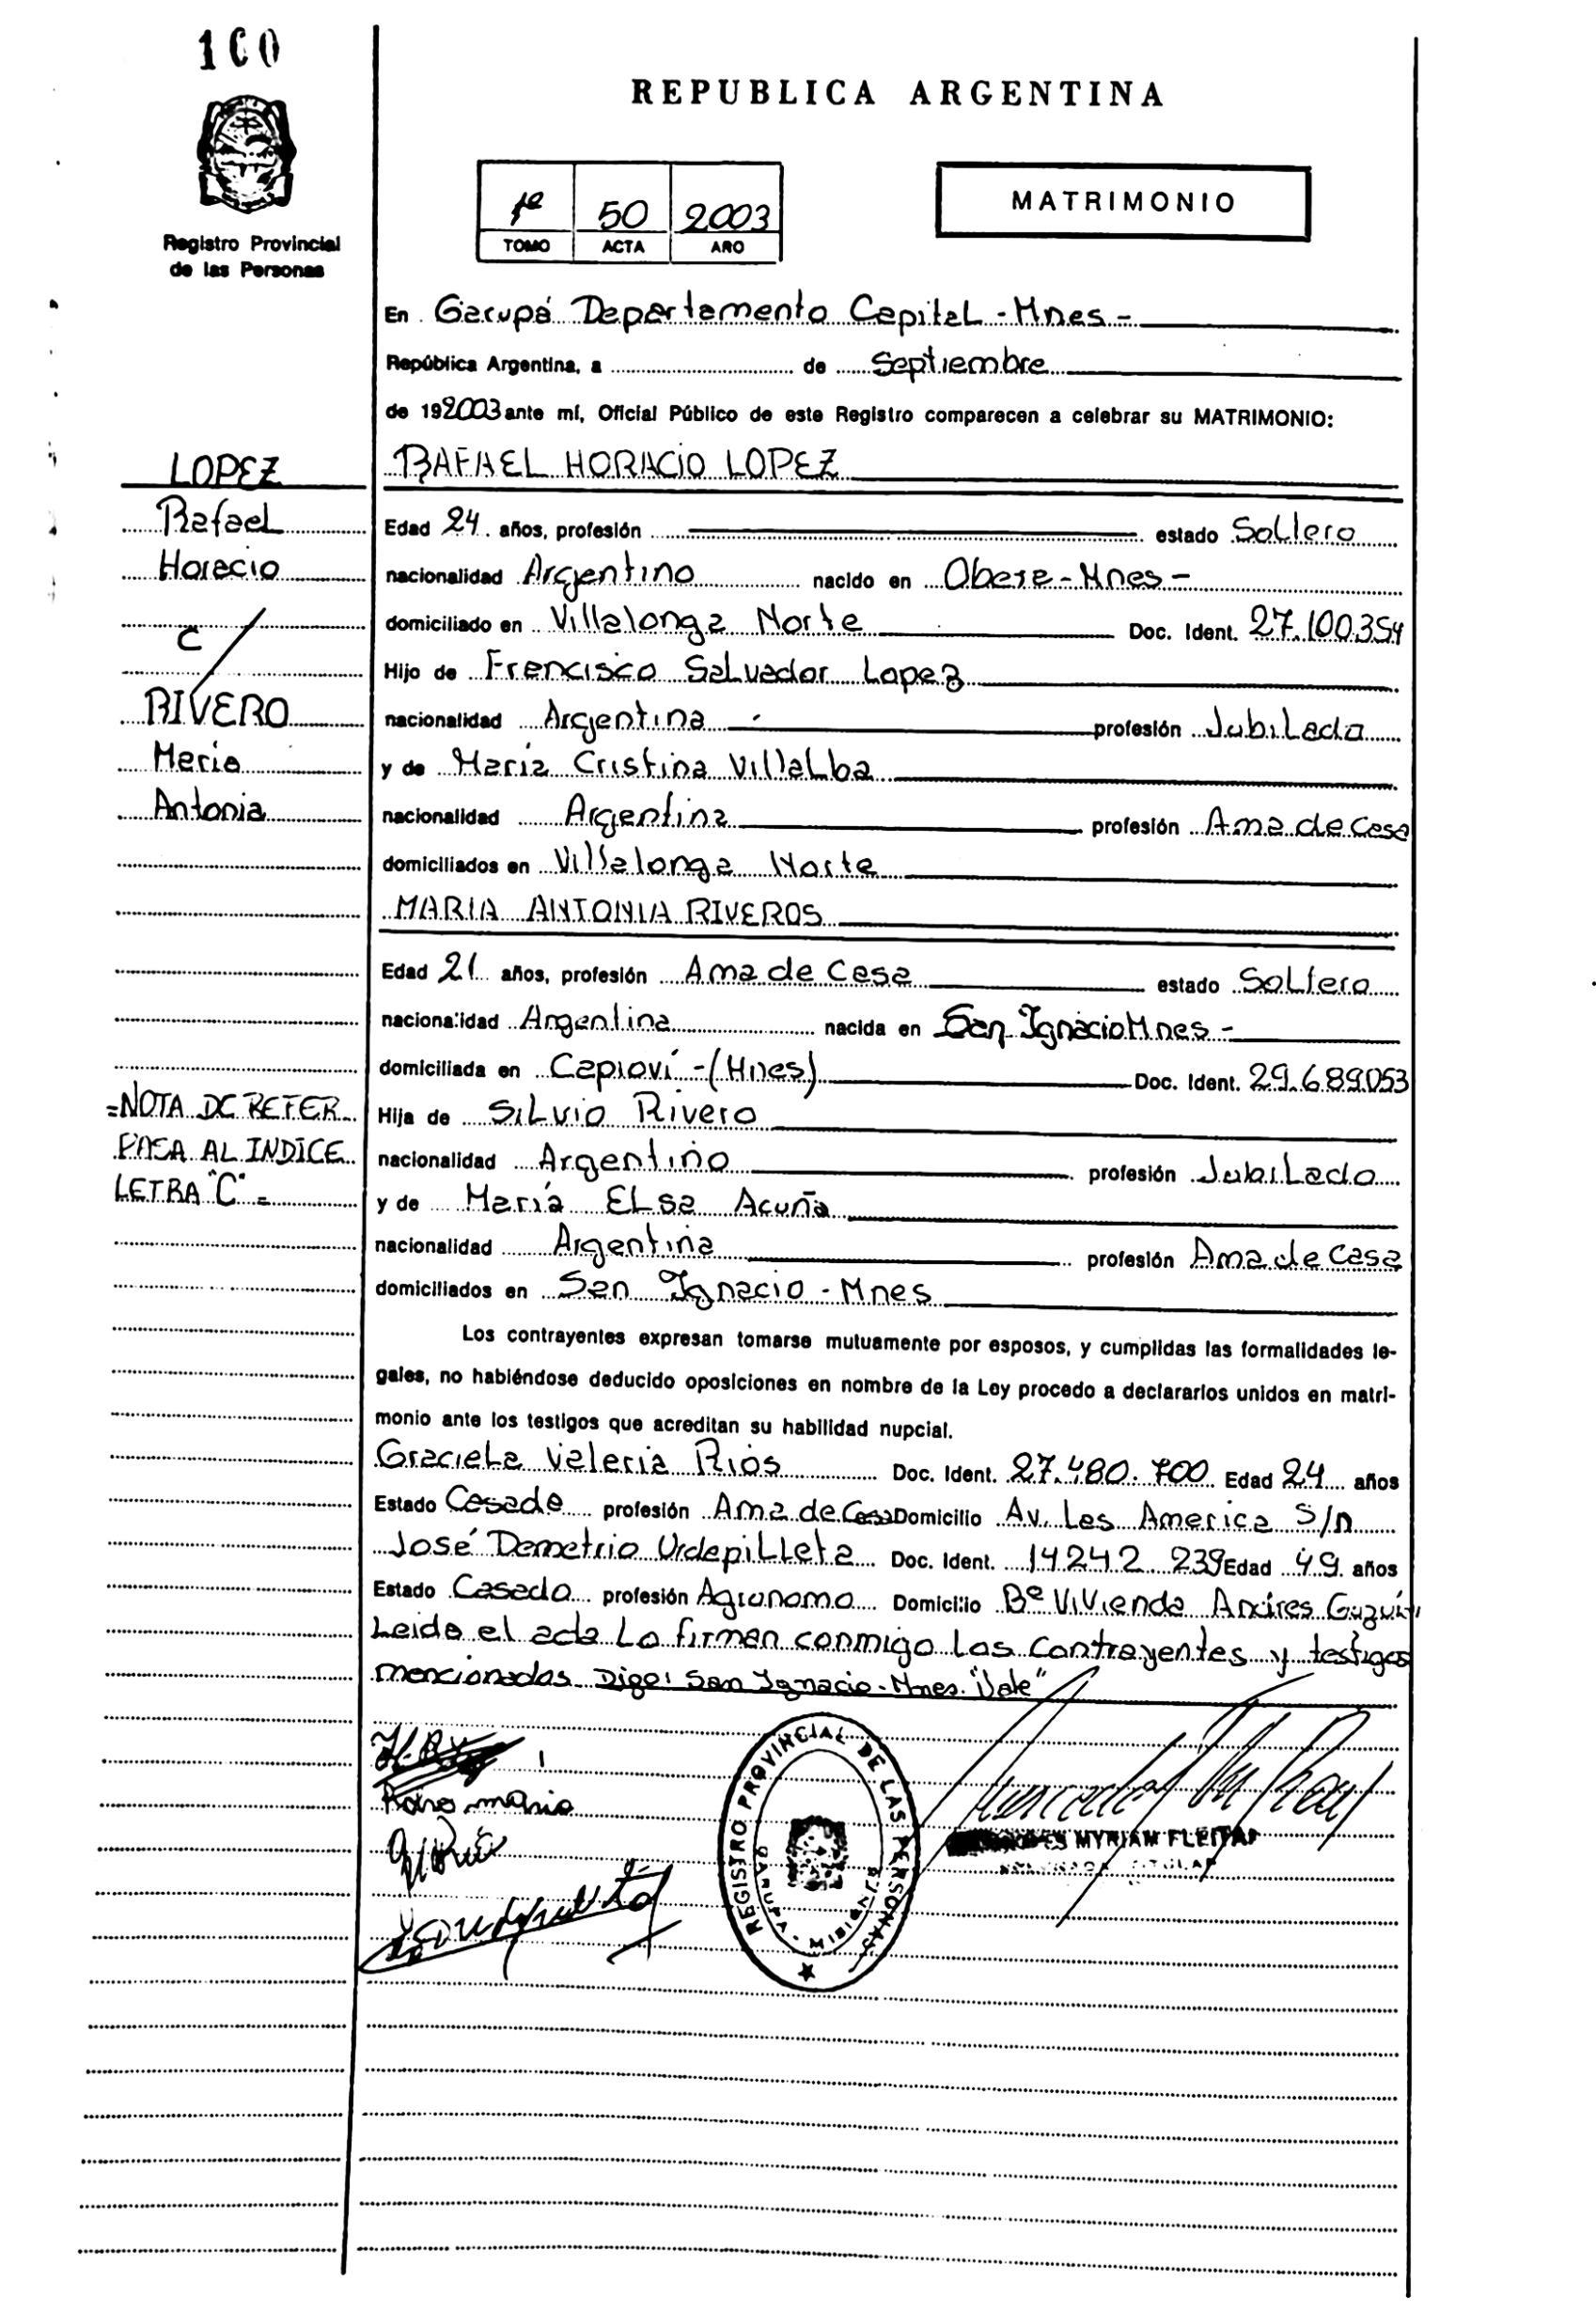 100
REPUBLICA ARGENTINA
1º 50 2003
TOMO ACTA AÑO
MATRIMONIO
Registro Provincial
de las Personas
En Garupá Departamento Capital - Mnes -
República Argentina, a de Septiembre
de 192003 ante mí, Oficial Público de este Registro comparecen a celebrar su MATRIMONIO:
LOPEZ
Rafael
Horacio
c/
RIVERO
Maria
Antonia
RAFAEL HORACIO LOPEZ
Edad 24 años, profesión estado Soltero
nacionalidad Argentino nacido en Obera - Mnes -
domiciliado en Villalonga Norte Doc. Ident. 27.100354
Hijo de Francisco Salvador Lopez
nacionalidad Argentina profesión Jubilado
y de María Cristina Villalba
nacionalidad Argentina profesión Ama de Casa
domiciliados en Villalonga Norte
MARIA ANTONIA RIVEROS
Edad 21 años, profesión Ama de Casa estado Soltera
nacionalidad Argentina nacida en San Ignacio Mnes -
domiciliada en Capioví - (Mnes) Doc. Ident. 29.689053
Hija de Silvio Rivero
nacionalidad Argentino profesión Jubilado
y de María Elsa Acuña
nacionalidad Argentina profesión Ama de Casa
domiciliados en San Ignacio - Mnes
=NOTA DE REFER
PASA AL INDICE
LETRA "C" =
Los contrayentes expresan tomarse mutuamente por esposos, y cumplidas las formalidades le-
gales, no habiéndose deducido oposiciones en nombre de la Ley procedo a declararlos unidos en matri-
monio ante los testigos que acreditan su habilidad nupcial.
Graciela Valeria Rios Doc. Ident. 27.480.700 Edad 24 años
Estado Casada profesión Ama de Casa Domicilio Av. Las America S/n
José Demetrio Urdapilleta Doc. Ident. 14242 239 Edad 49 años
Estado Casado profesión Agronomo Domicilio Bº Vivienda Andres
Leida el acta La firman conmigo Los Contrayentes y testigos
mencionados Digo: San Ignacio - Mnes. "Vale"
maria
REGISTRO PROVINCIAL DE LAS PERSONAS
GARUPA - MISIONES
MYRIAM FLEITAS
TITULAR